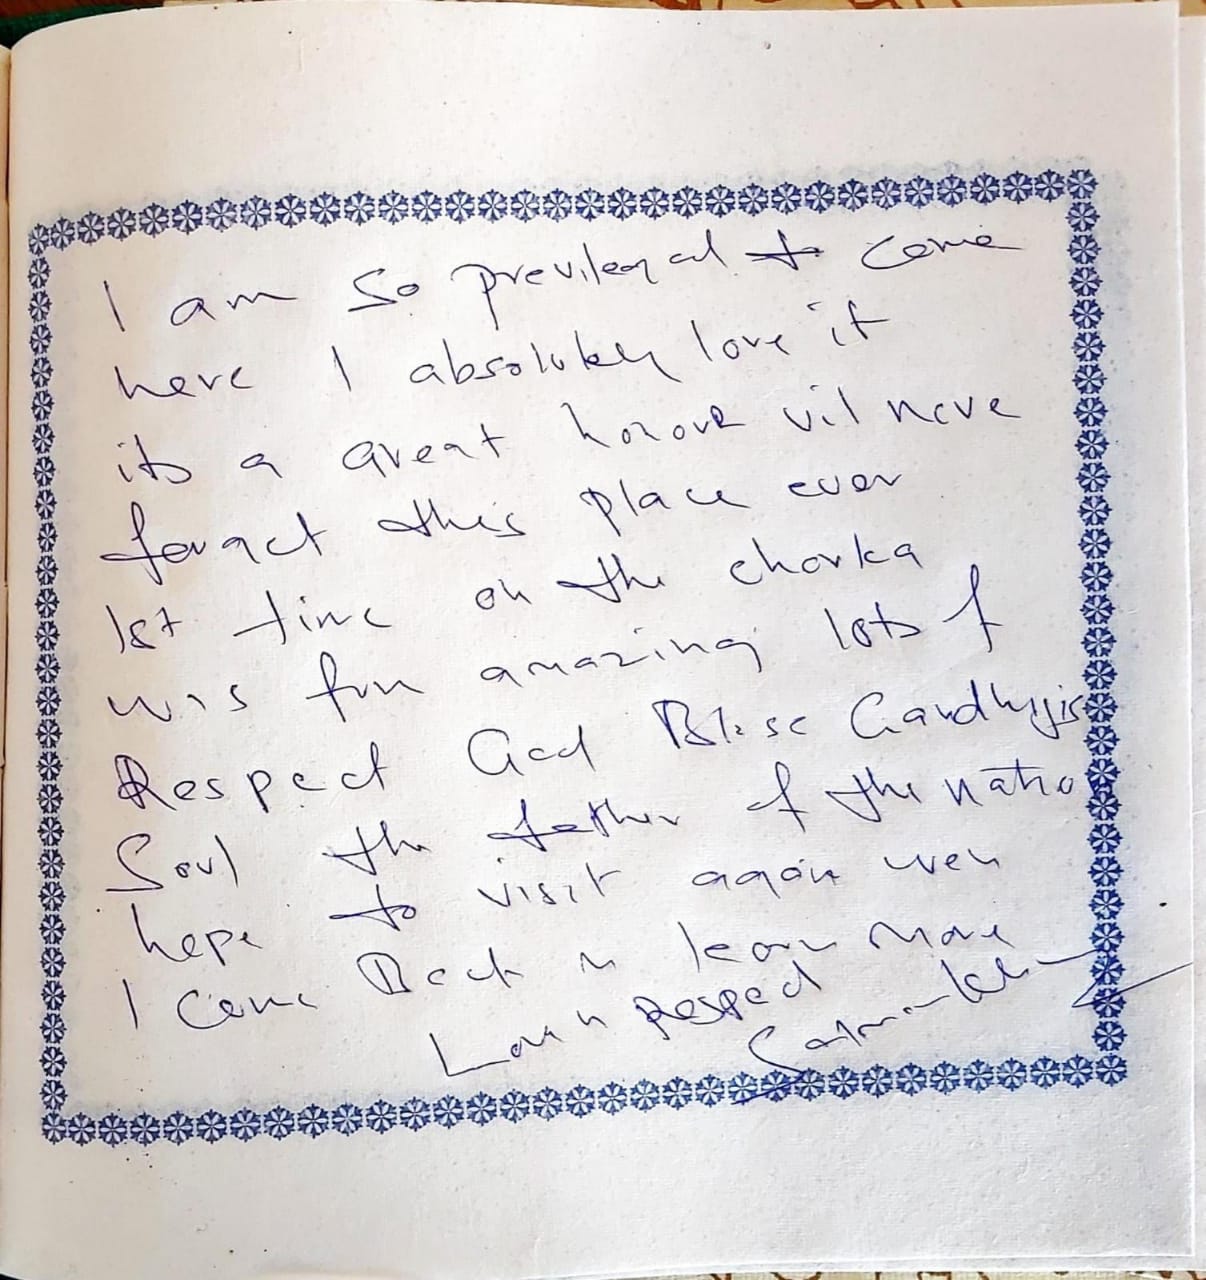 I am so previleged to come
here I absolutely love it
its a great honour vil neve
forget this place ever
1st time on the charka
was fun amazing lots of
Respect God Bless Gandhijis
Soul the father of the natio
hope to visit again wen
I come Back n learn more
Love n Respect
Salman Khan